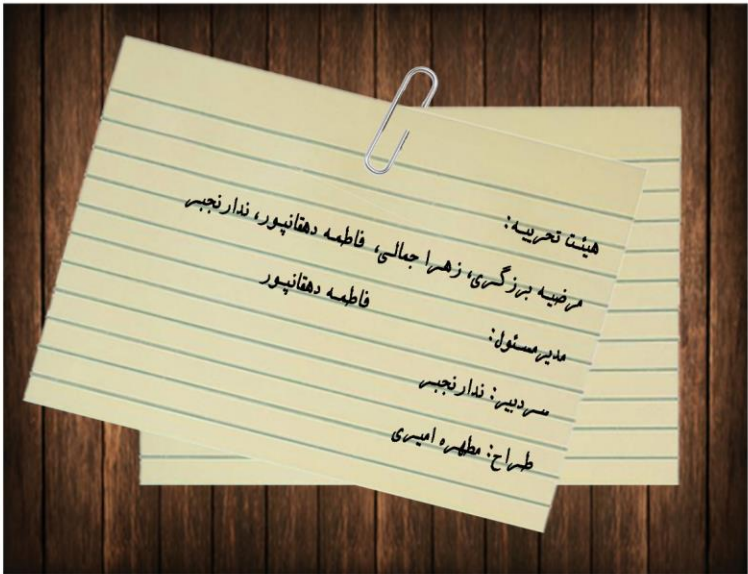 هیئت تحریریه:
مرضیه برزگری، زهرا جمالی، فاطمه دهقانپور، ندا رنجبر
مدیر مسئول: فاطمه دهقانپور
سردبیر: ندا رنجبر
طراح: مطهره امیری